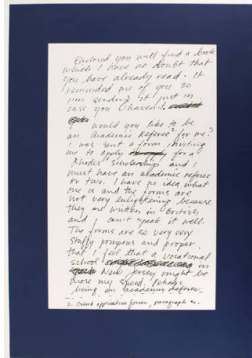 Enclosed you will find a book
which I have no doubt that
you have already read. It
reminded me of you so
am sending it just in
case you haven't.
Would you like to be
an academic referee for me?
I was sent a form inviting
me to apply for a
Rhodes Scholarship and I
must have an academic referee
or two. I have no idea what
one is and the forms are
not very enlightening because
they are written in British
and I can't speak it well.
The forms are so very very
stuffy pompous and proper
that I feel that a vocational
school in
New Jersey might be
more my speed. Perhaps
being an academic referee